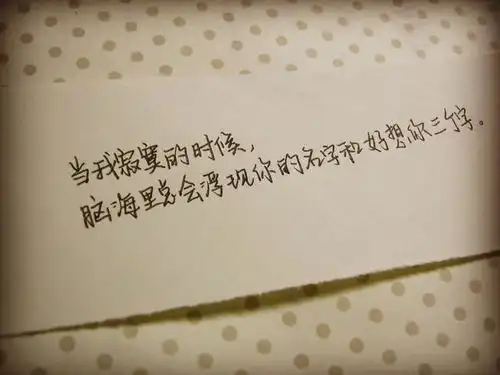 当我寂寞的时候,
脑海里总会浮现你的名字和好想你三个字。